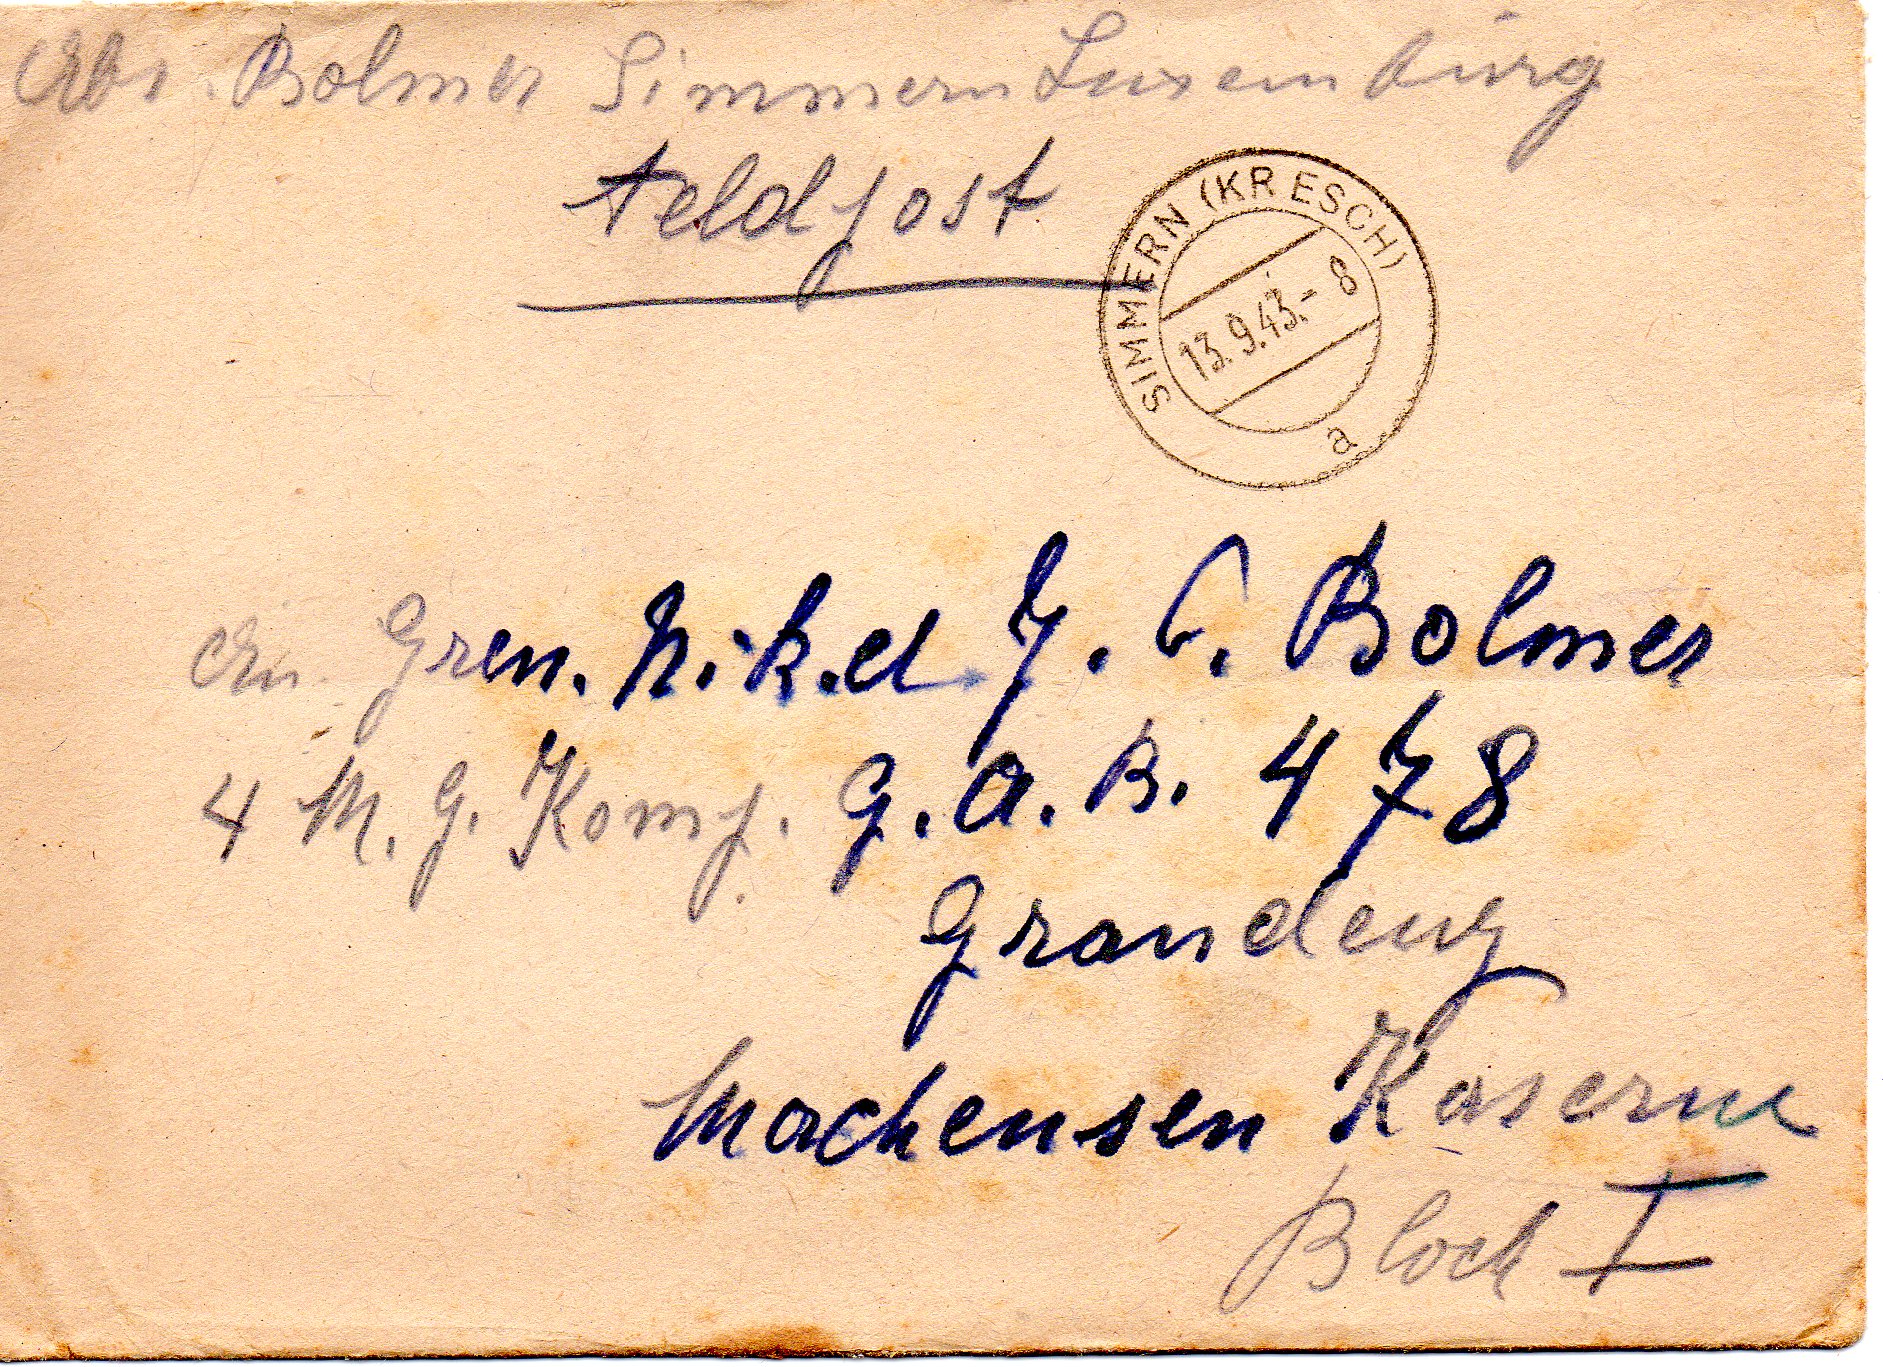 Abs. Bolmer Simmern Luxemburg
Feldpost
SIMMERN (KR ESCH)
13.9.43.- 8
a
An Gren. J. C. Bolmer
4 M. G. Komp. G. A. B. 478
Graudenz
Mackensen Kaserne
Block I